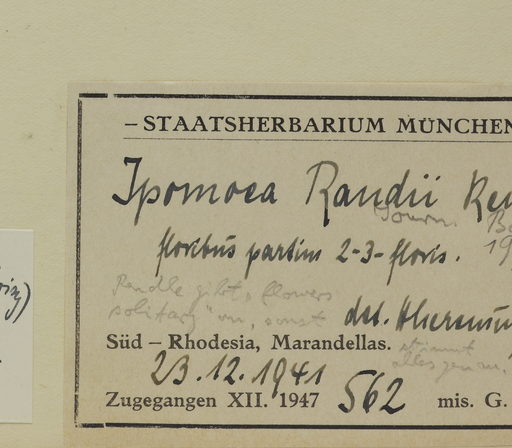 – STAATSHERBARIUM MÜNCHEN
Ipomoea Randii Ren
Journ. B
floribus partim 2-3-floris. 19
Rendle gibt „flowers
solitary" an, sonst det. Merxmü
Süd – Rhodesia, Marandellas. stimmt
23.12.1941 alles genau.
Zugegangen XII. 1947 562 mis. G.